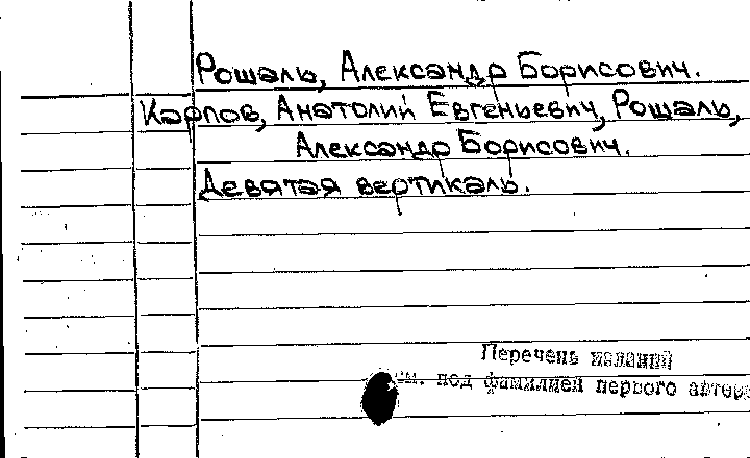 Рошаль, Александр Борисович.
Карпов, Анатолий Евгеньевич, Рошаль,
Александр Борисович.
Девятая вертикаль.
Перечень изданий
см. под фамилией первого автора